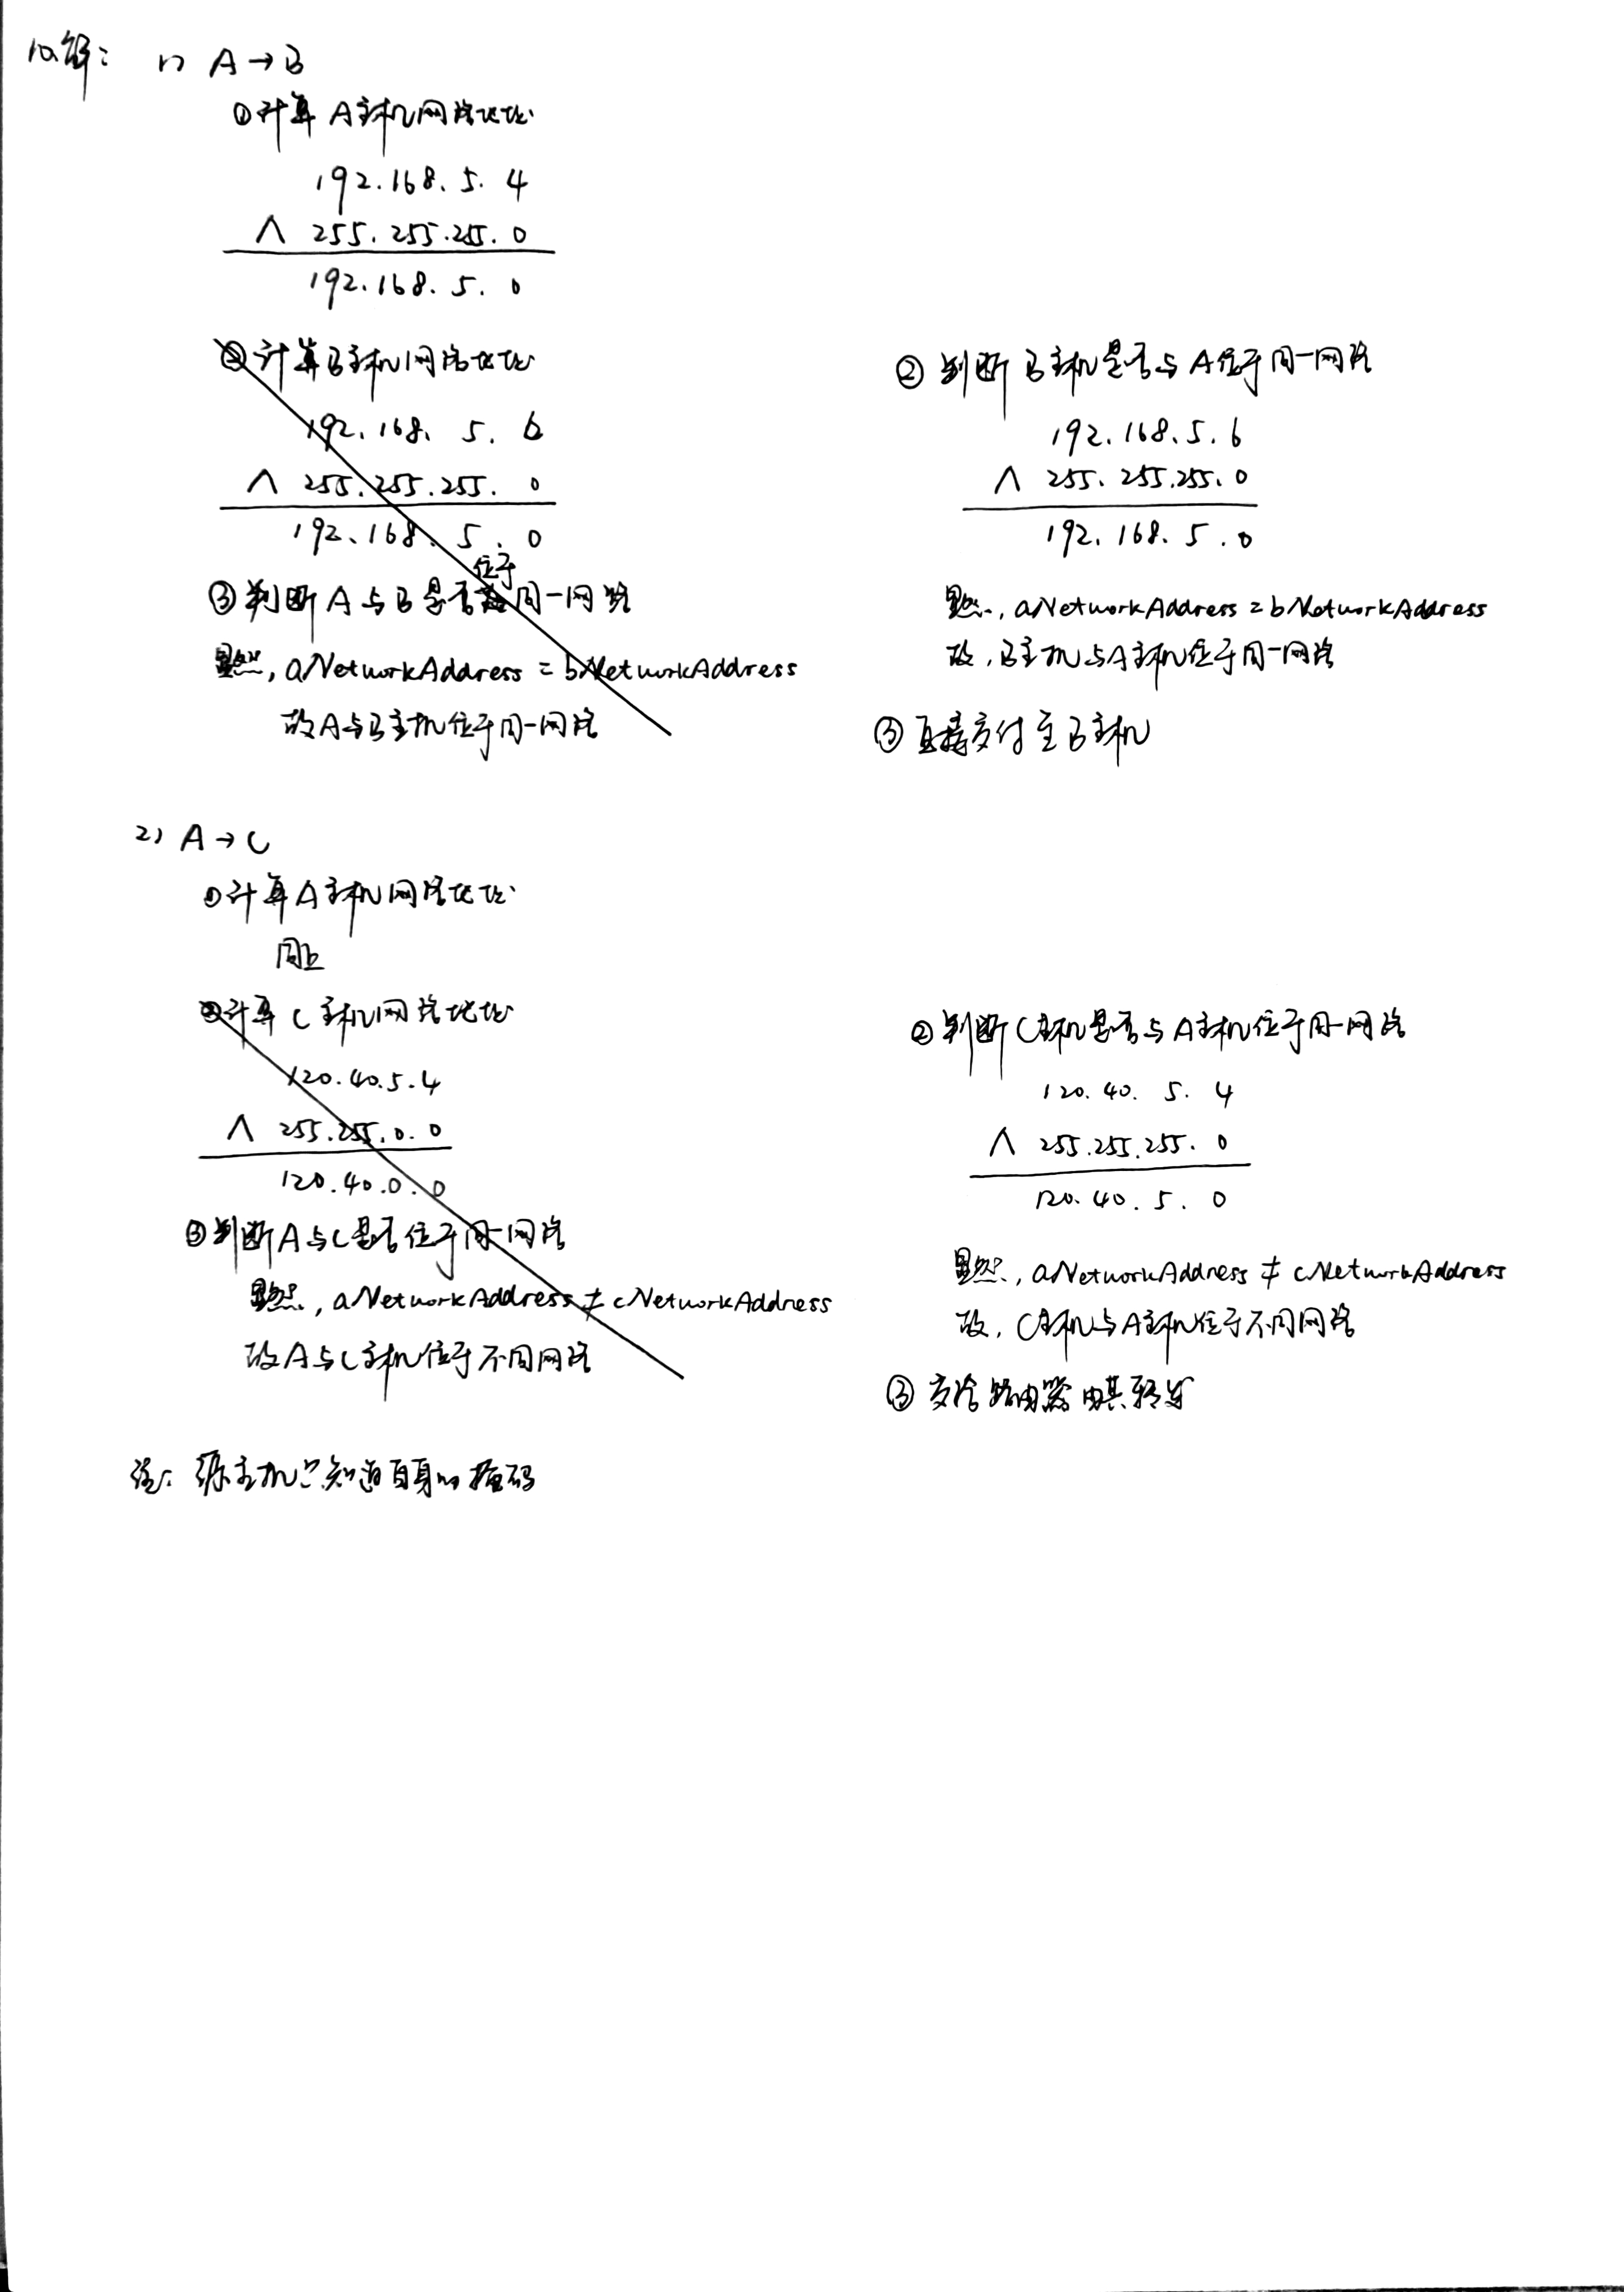 10.解:
1) A→B
①计算A主机网络地址
192.168.5.4
∧ 255.255.255.0
192.168.5.0
②计算B主机网络地址
192.168.5.6
∧ 255.255.255.0
192.168.5.0
③判断A与B是否位于同一网络
显然, aNetworkAddress = bNetworkAddress
故A与B主机位于同一网络
②判断B主机是否与A位于同一网络
192.168.5.6
∧ 255.255.255.0
192.168.5.0
显然, aNetworkAddress = bNetworkAddress
故,B主机与A主机位于同一网络
③直接交付至B主机
2) A→C
①计算A主机网络地址
同上
②计算C主机网络地址
120.40.5.4
∧ 255.255.0.0
120.40.0.0
③判断A与C是否位于同一网络
显然, aNetworkAddress ≠ cNetworkAddress
故A与C主机位于不同网络
②判断C主机是否与A主机位于同一网络
120.40.5.4
∧ 255.255.255.0
120.40.5.0
显然, aNetworkAddress ≠ cNetworkAddress
故,C主机与A主机位于不同网络
③交给路由器由其转发
注:源主机只知道自身的掩码